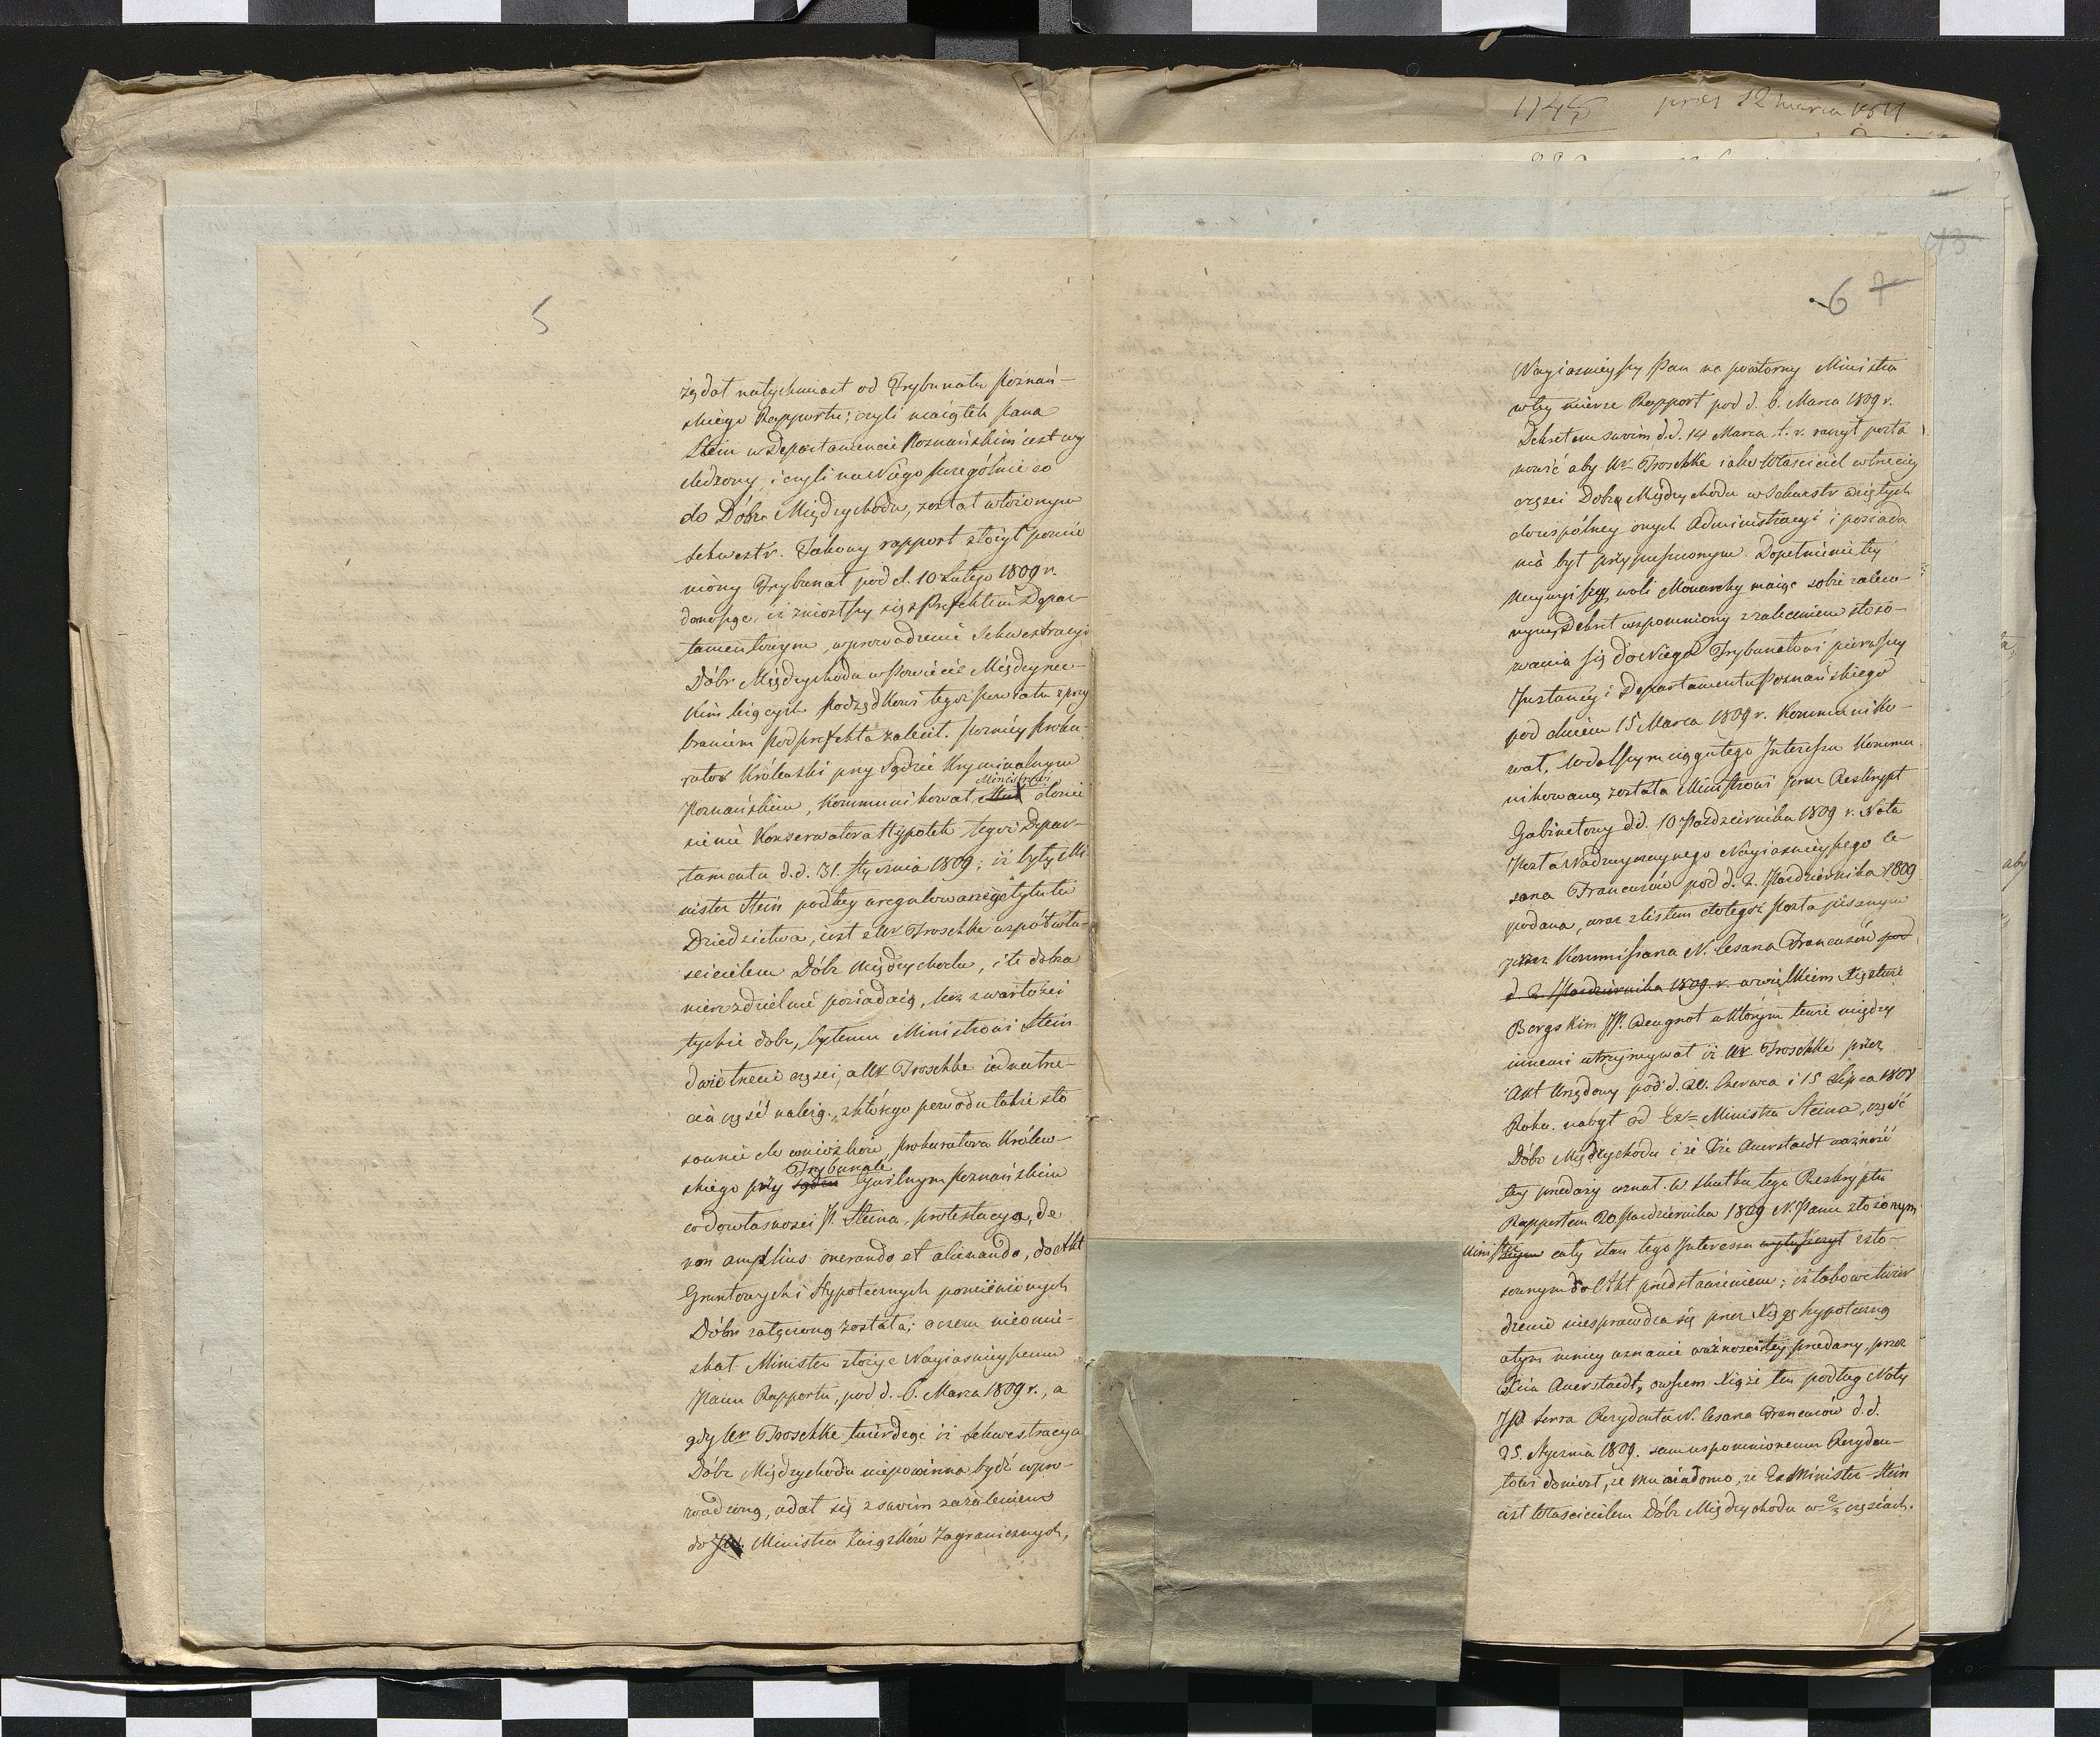 1145 pres 12 marca 1811
13
5
żądał natychmiast od Trybunału Poznań-
skiego Rapportu; czyli maiątek Pana
Stein w Departamencie Poznańskim iest wy
śledzony, i czyli na Niego szczególnie co
do Dóbr Międzychodu, został włożonym
sekwestr. Takowy rapport złożył pomie
niony Trybunał pod d. 10 Lutego 1809 r.
donosząc, iż zniósłszy się z Prefektem Depar-
tamentowym, wprowadzenie Sekwestracyi
Dóbr Międzychodu w Powiecie Międzyrzec-
kim leżących Podsędkowi tegoż Powiatu z przy
braniem Podprefekta zalecił. Pozniey Proku
rator Królewski przy Sądzie Kryminalnym
Ministrowi
Poznańskim, Kommunikował donie
sienie Konserwatora Hypotek tegoż Depar-
tamentu d.d. 31. Stycznia 1809; iż były Mi
nister Stein podług uregulowanego tytułu
Dziedzictwa, iest z Ur Troschke współwła-
ścicielem Dóbr Międzychodu, i te dobra
nierozdzielnie posiadaią, lecz z wartości
tychże dobr, byłemu Ministrowi Stein
dwie trzecie części, a Ur Troschke iedna trze-
cia część należą, z którego powodu także sto
sownie do wniosków Prokuratora Królew-
Trybunale
skiego przy sądzie Cywilnym Poznańskim
co do własności P. Steina, protestacya, de
non amplius onerando et alienando, do Akt
Gruntowych i Hypotecznych pomienionych
Dóbr załączoną została; o czem nieomie-
szkał Minister złożyć Nayiaśnieyszemu
Panu Rapportu, pod d. 6. Marca 1809 r., a
gdy Ur Troschke twierdząc iż sekwestracya
Dóbr Międzychodu niepowinna bydź wpro-
wadzoną, udał się z swoim zażaleniem
do JW. Ministra Związków Zagranicznych,
6 7
Nayiaśnieyszy Pan na powtórny Ministra
w tey mierze Rapport pod d. 6. Marca 1809 r.
Dekretem swoim d.d. 14 Marca t. r. raczył posta
nowić aby Ur Troschke iako Właściciel w trzeciey
części Dobr Międzychodu w Sekwestr wziętych
do wspólney onych Administracyi i posiada
nia był przypuszczonym. Dopełnienie tey
Naywyższey woli Monarchy maiąc sobie zaleco-
nym, Dekret wspomniony z zaleceniem stoso-
wania się do niego Trybunałowi pierwszey
Instancyi Departamentu Poznańskiego
pod dniem 15 Marca 1809 r. Kommuniko-
wał. W dalszym ciągu tego Interessu Kommu
nikowaną została Ministrowi przez Reskrypt
Gabinetowy d.d. 10 Października 1809 r. Nota
Posła Nadzwyczaynego Nayiaśnieyszego Ce
sarza Francuzów pod d. 2. Października 1809
podana, wraz z listem do tegoż Posła pisanym
przez Kommissarza N. Cesarza Francuzów pod
d 2. Października 1809. r. w wielkiem Xięstwie
Bergskim JP. Beugnot w którym tenże między
innemi utrzymywał iż Ur Troschke przez
Akt Urzędowy pod d. 20. Czerwca i 15 Lipca 1808
Roku. nabył od Ex=Ministra Steina, część
Dóbr Międzychodu i że Xże Auerstaedt ważność
tey przedaży uznał. W skutku tego Reskryptu
Rapportem 20 Października 1809 N. Panu złożonym
Minister cały stan tego Interessu wyłuszczył z sto-
sownym do Akt przedstawieniem; iż takowe twier
dzenie niesprawdza się przez Xięgę hypoteczną
a tym mniey uznanie ważności tey przedaży przez
Xcia Auerstaedt, owszem Xiąże ten podług Noty
JP Serra Rezydenta N. Cesarza Francuzów d.d.
25. Stycznia 1809. sam wspomnionemu Rezyden-
towi doniósł, że mu wiadomo, że Ex Minister Stein
iest Właścicielem Dóbr Międzychodu w 2/3 częściach.
aby